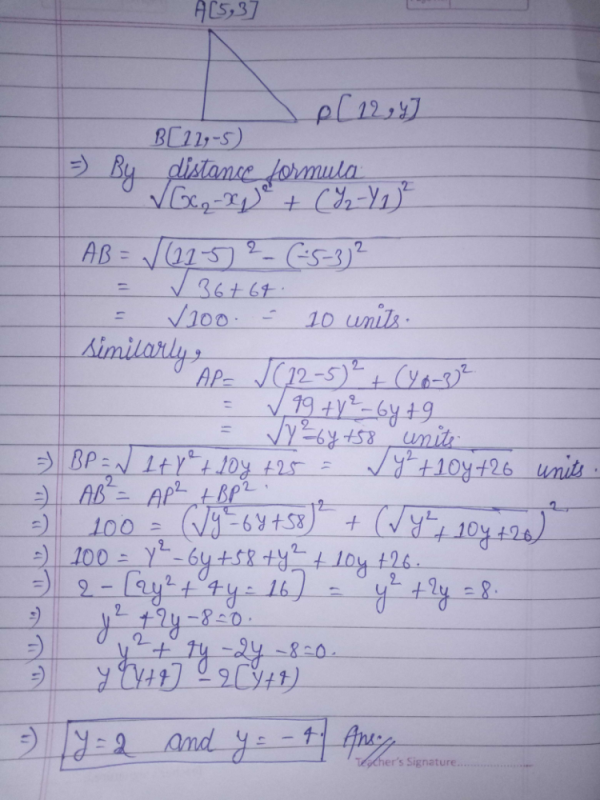 A[5,3]
P[12,y]
B[11,-5)
=> By distance formula
√(x₂-x₁)² + (Y₂-Y1)²
AB = √(11-5)² - (-5-3)²
= √36+64.
= √100. = 10 units.
Similarly,
AP= √(12-5)² + (y-3)²
= √49+Y²-6y+9
= √Y²-6y+58 units.
=> BP=√1+Y²+10y+25 = √y²+10y+26 units.
=> AB²= AP² +BP².
=> 100 = (√y²-6y+58)² + (√y²+10y+26)²
=> 100 = Y²-6y+58+y²+10y+26.
=> 2-[2y²+4y=16] = y²+2y=8.
=> y²+2y-8=0.
=> y²+4y-2y-8=0.
=> y[y+4] -2[y+4)
=> y=2 and y=-4. Ans.
Teacher's Signature